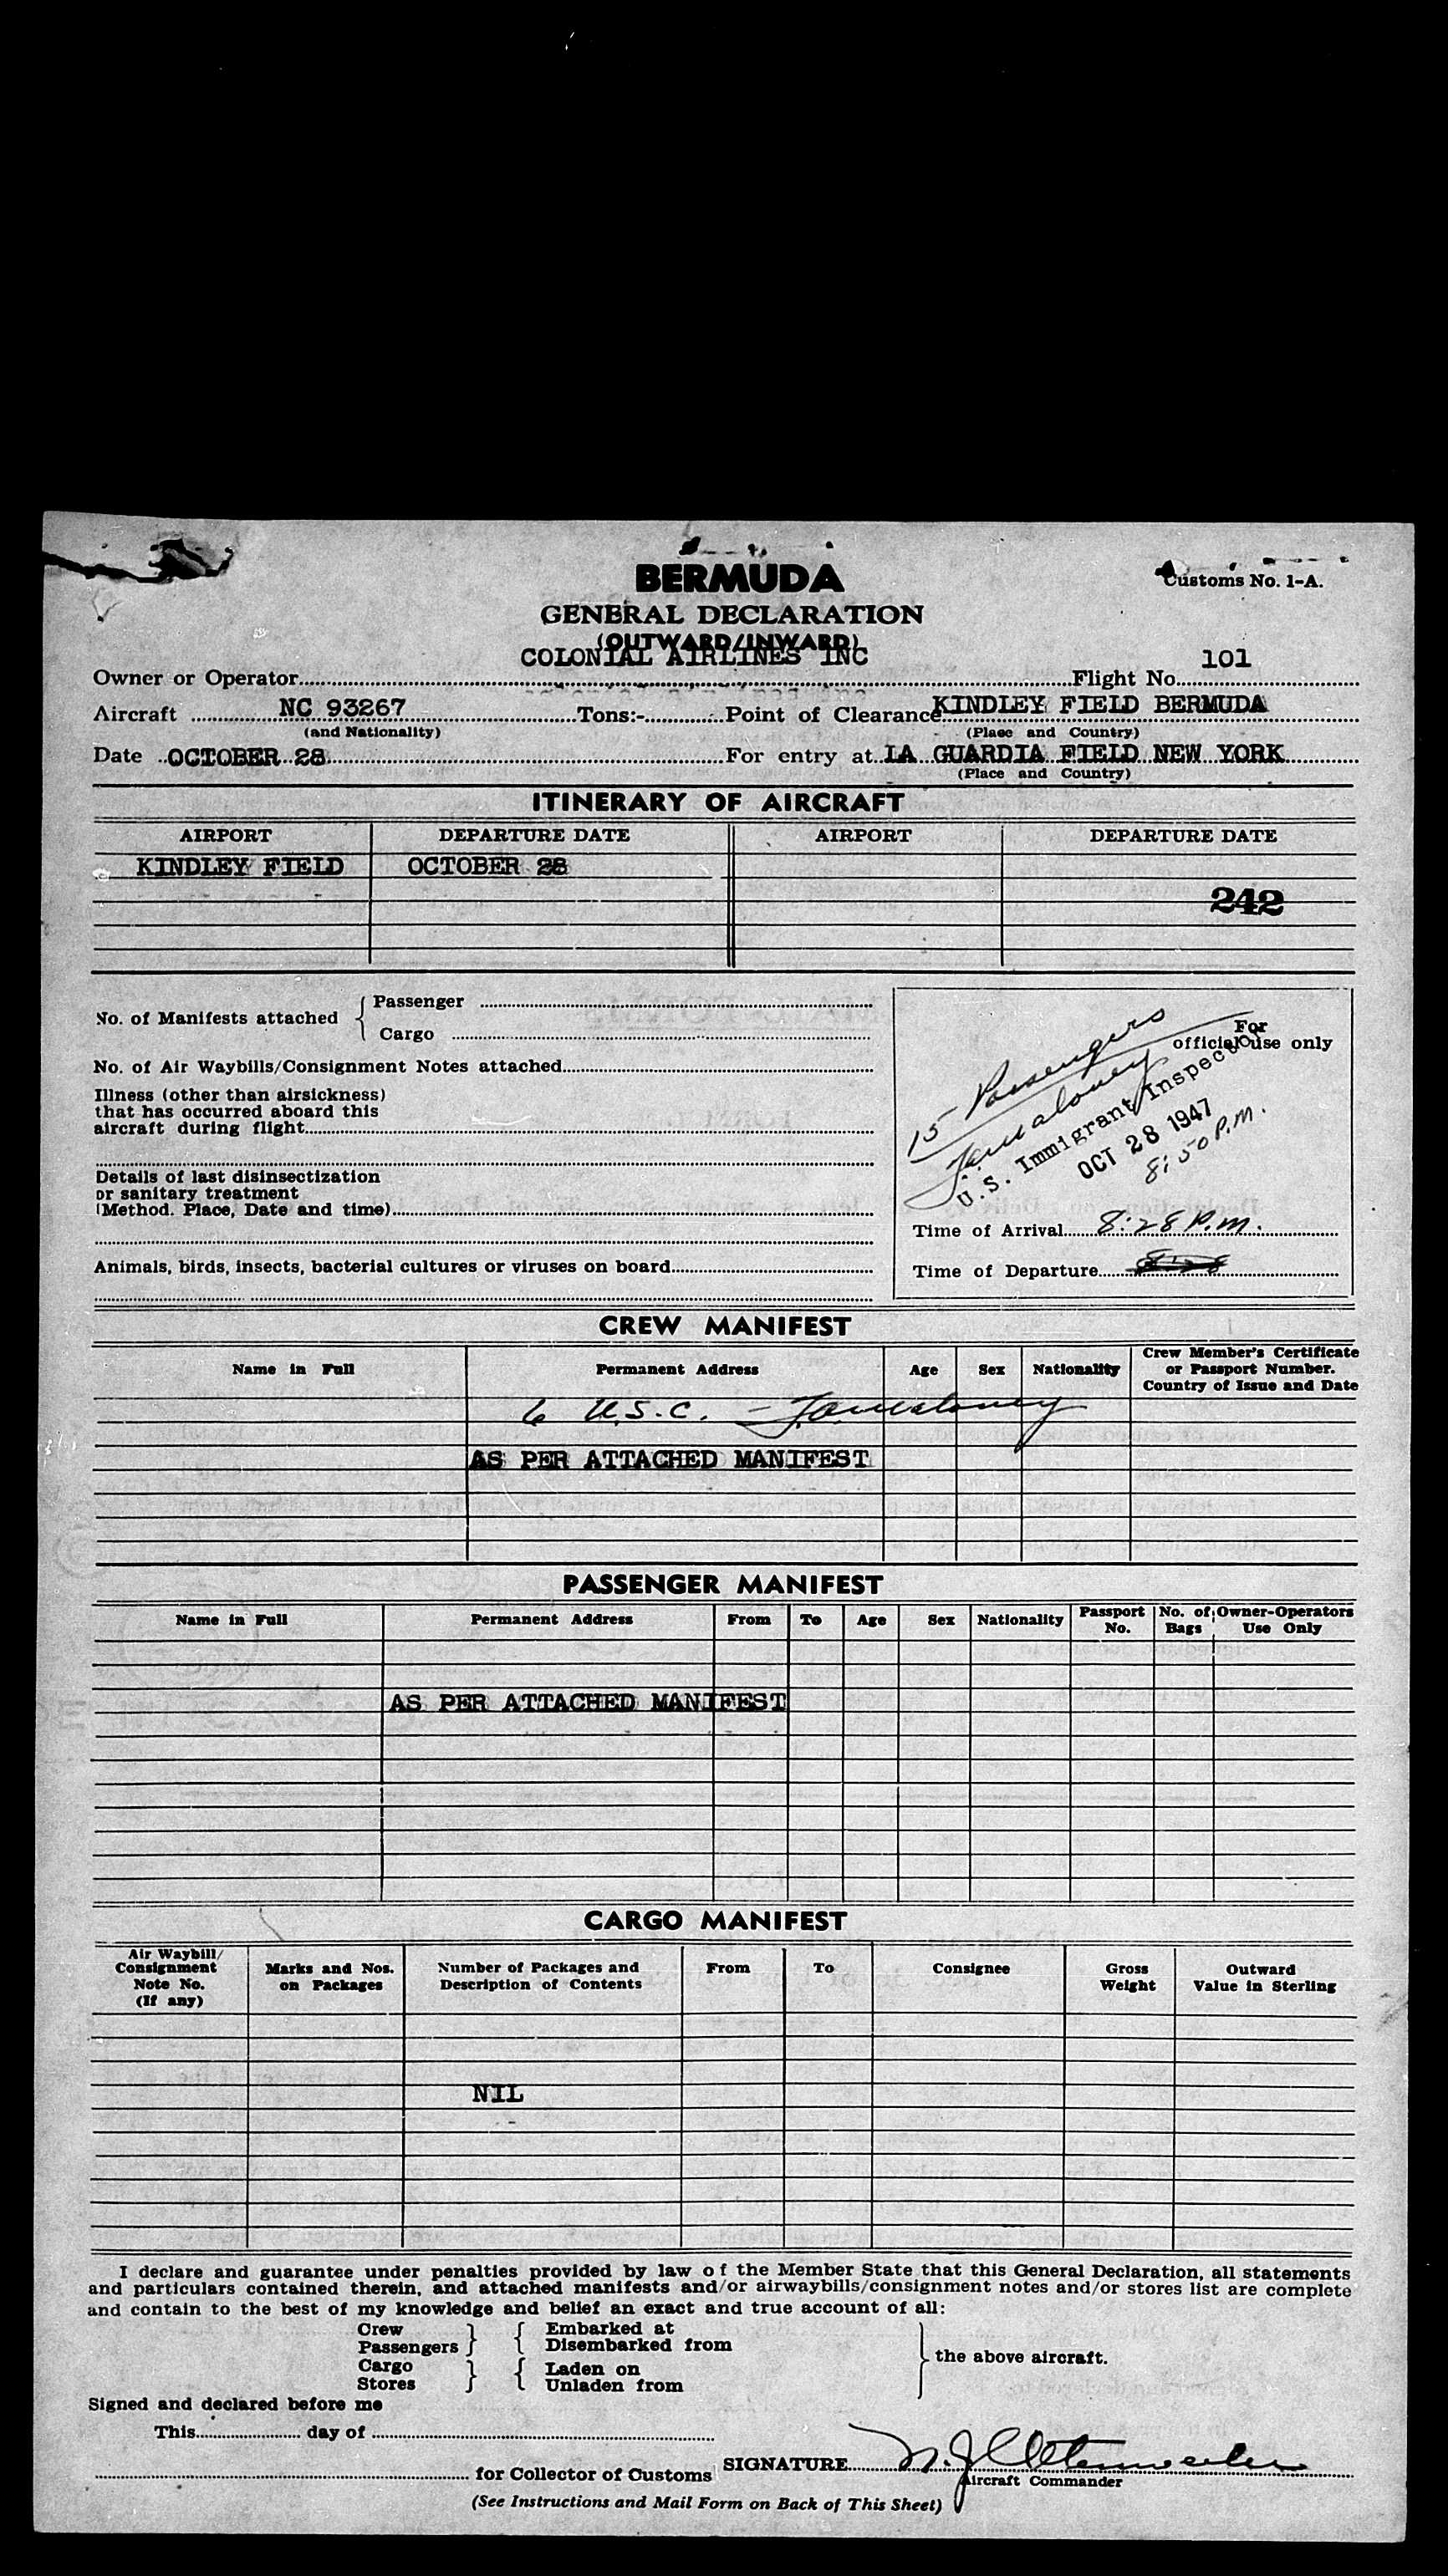 BERMUDA
Customs No. 1-A.
GENERAL DECLARATION
(OUTWARD/INWARD)
COLONIAL AIRLINES INC
101
Owner or Operator Flight No.
Aircraft NC 93267 Tons:- Point of Clearance KINDLEY FIELD BERMUDA
(and Nationality) (Place and Country)
Date OCTOBER 28 For entry at LA GUARDIA FIELD NEW YORK
(Place and Country)
ITINERARY OF AIRCRAFT
AIRPORT DEPARTURE DATE AIRPORT DEPARTURE DATE
KINDLEY FIELD OCTOBER 28
242
No. of Manifests attached { Passenger
Cargo
No. of Air Waybills/Consignment Notes attached
Illness (other than airsickness)
that has occurred aboard this
aircraft during flight
Details of last disinsectization
or sanitary treatment
(Method. Place, Date and time)
Animals, birds, insects, bacterial cultures or viruses on board
For
official use only
15 Passengers
U.S. Immigrant Inspector
OCT 28 1947
8:50 P.M.
Time of Arrival 8:28 P.M.
Time of Departure
CREW MANIFEST
Name in Full Permanent Address Age Sex Nationality Crew Member's Certificate
or Passport Number.
Country of Issue and Date
6 U.S.C. -
AS PER ATTACHED MANIFEST
PASSENGER MANIFEST
Name in Full Permanent Address From To Age Sex Nationality Passport No. No. of Bags Owner-Operators Use Only
AS PER ATTACHED MANIFEST
CARGO MANIFEST
Air Waybill/ Consignment Note No. (If any) Marks and Nos. on Packages Number of Packages and Description of Contents From To Consignee Gross Weight Outward Value in Sterling
NIL
I declare and guarantee under penalties provided by law of the Member State that this General Declaration, all statements
and particulars contained therein, and attached manifests and/or airwaybills/consignment notes and/or stores list are complete
and contain to the best of my knowledge and belief an exact and true account of all:
Crew } { Embarked at
Passengers Disembarked from
the above aircraft.
Cargo } { Laden on
Stores Unladen from
Signed and declared before me
This day of
SIGNATURE
for Collector of Customs
Aircraft Commander
(See Instructions and Mail Form on Back of This Sheet)